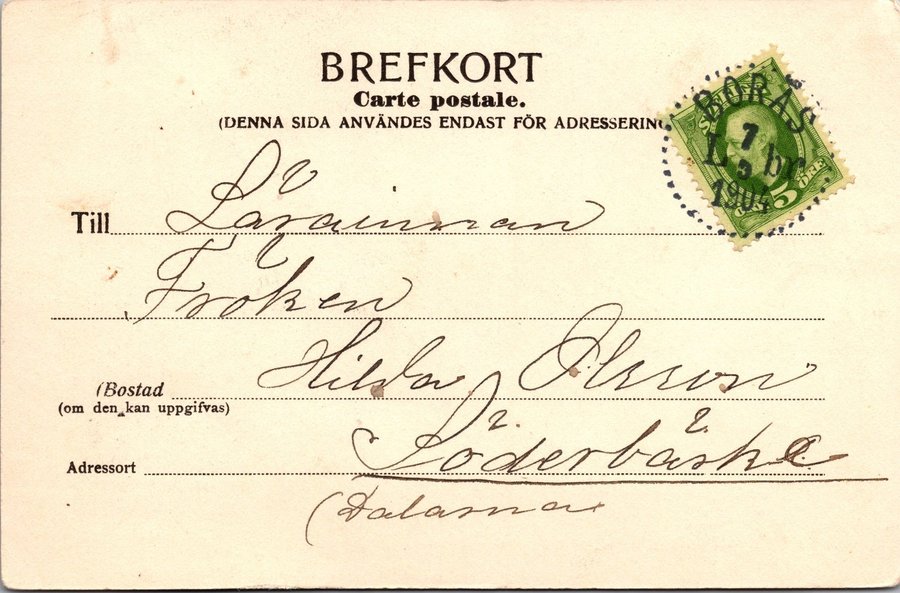 BREFKORT
Carte postale.
(DENNA SIDA ANVÄNDES ENDAST FÖR ADRESSERING
BORÅS
7
L br
1904
5 ÖRE
Till Lärarinnan
Fröken
Hilda Olsson
(Bostad
(om den kan uppgifvas)
Adressort Söderbärke
(Dalarna